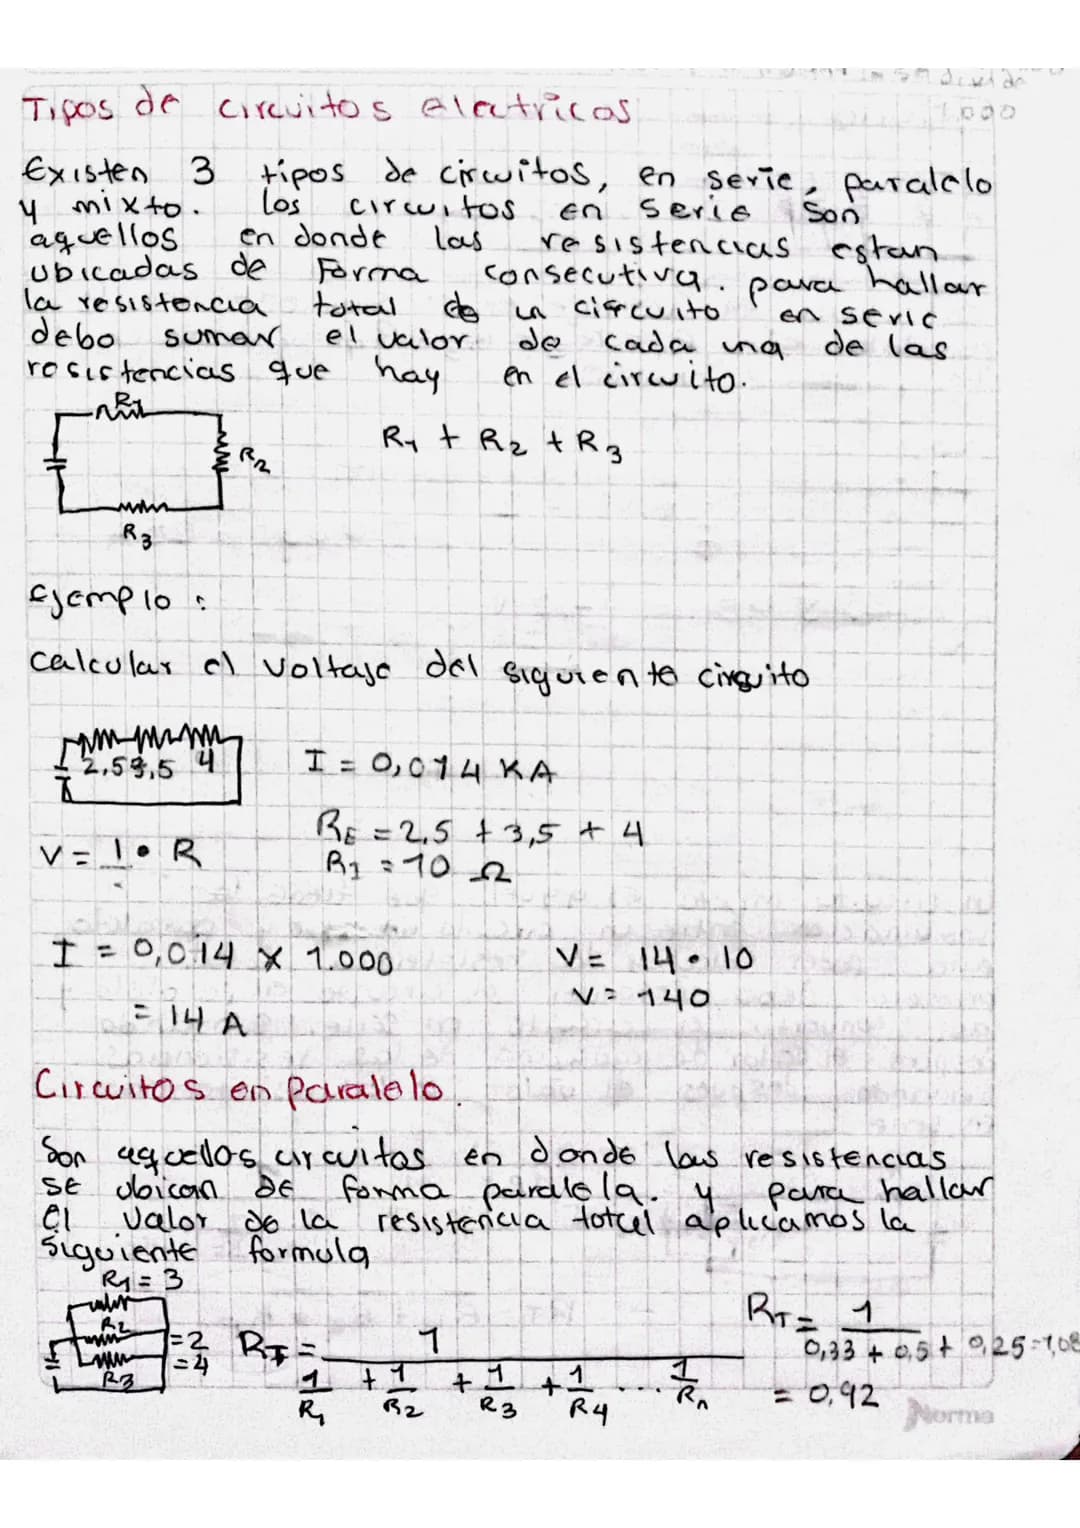 Tipos de circuitos electricos
1.000
Existen 3 tipos de circuitos, en serie, paralelo
y mixto. Los circuitos en serie son
aquellos en donde las resistencias estan
ubicadas de Forma consecutiva. para hallar
la resistencia total de un circuito en serie
debo sumar el valor de cada una de las
resistencias que hay en el circuito.
R1
R2
R1 + R2 + R3
R3
Ejemplo :
calcular el voltaje del siguiente circuito
2,5 3,5 4
I = 0,014 KA
RE = 2,5 + 3,5 + 4
V = I • R
RJ = 10 Ω
I = 0,014 x 1.000
V = 14 • 10
V = 140
= 14 A
Circuitos en paralelo.
Son aquellos circuitos en donde las resistencias
se ubican de forma paralela. y para hallar
el valor de la resistencia total aplicamos la
siguiente formula
R1 = 3
R2 = 2
R3 = 4
RT = 1 / 1/R1 + 1/R2 + 1/R3 + 1/R4 ... 1/Rn
RT = 1 / 0,33 + 0,5 + 0,25 = 1,08
= 0,92
Norma